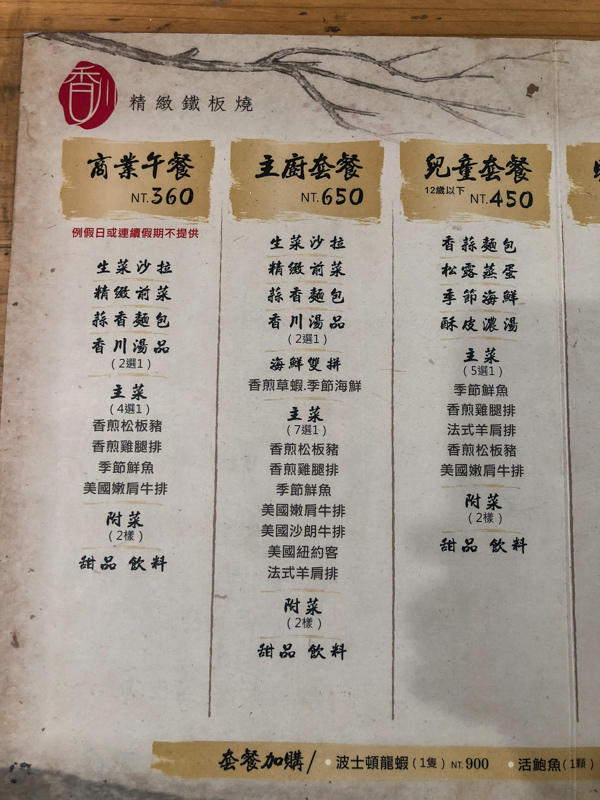 香川
精緻鐵板燒
商業午餐
NT.360
例假日或連續假期不提供
生菜沙拉
精緻前菜
蒜香麵包
香川湯品
(2選1)
主菜
(4選1)
香煎松板豬
香煎雞腿排
季節鮮魚
美國嫩肩牛排
附菜
(2樣)
甜品 飲料
主廚套餐
NT.650
生菜沙拉
精緻前菜
蒜香麵包
香川湯品
(2選1)
海鮮雙拼
香煎草蝦.季節海鮮
主菜
(7選1)
香煎松板豬
香煎雞腿排
季節鮮魚
美國嫩肩牛排
美國沙朗牛排
美國紐約客
法式羊肩排
附菜
(2樣)
甜品 飲料
兒童套餐
12歲以下 NT.450
香蒜麵包
松露蒸蛋
季節海鮮
酥皮濃湯
主菜
(5選1)
季節鮮魚
香煎雞腿排
法式羊肩排
香煎松板豬
美國嫩肩牛排
附菜
(2樣)
甜品 飲料
套餐加購/ •波士頓龍蝦(1隻) NT.900 •活鮑魚(1顆)